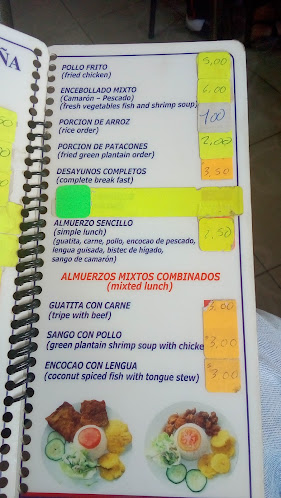 ÑA
POLLO FRITO 5,00
(fried chicken)
ENCEBOLLADO MIXTO
(Camarón – Pescado)
(fresh vegetables fish and shrimp soup)
PORCION DE ARROZ 1,00
(rice order)
PORCION DE PATACONES 2,00
(fried green plantain order)
DESAYUNOS COMPLETOS 3,50
(complete break fast)
ALMUERZO SENCILLO
(simple lunch)
(guatita, carne, pollo, encocao de pescado,
lengua guisada, bistec de higado,
sango de camarón)
ALMUERZOS MIXTOS COMBINADOS
(mixted lunch)
GUATITA CON CARNE 3,00
(tripe with beef)
SANGO CON POLLO 3,00
(green plantain shrimp soup with chicke
ENCOCAO CON LENGUA 3,00
(coconut spiced fish with tongue stew)